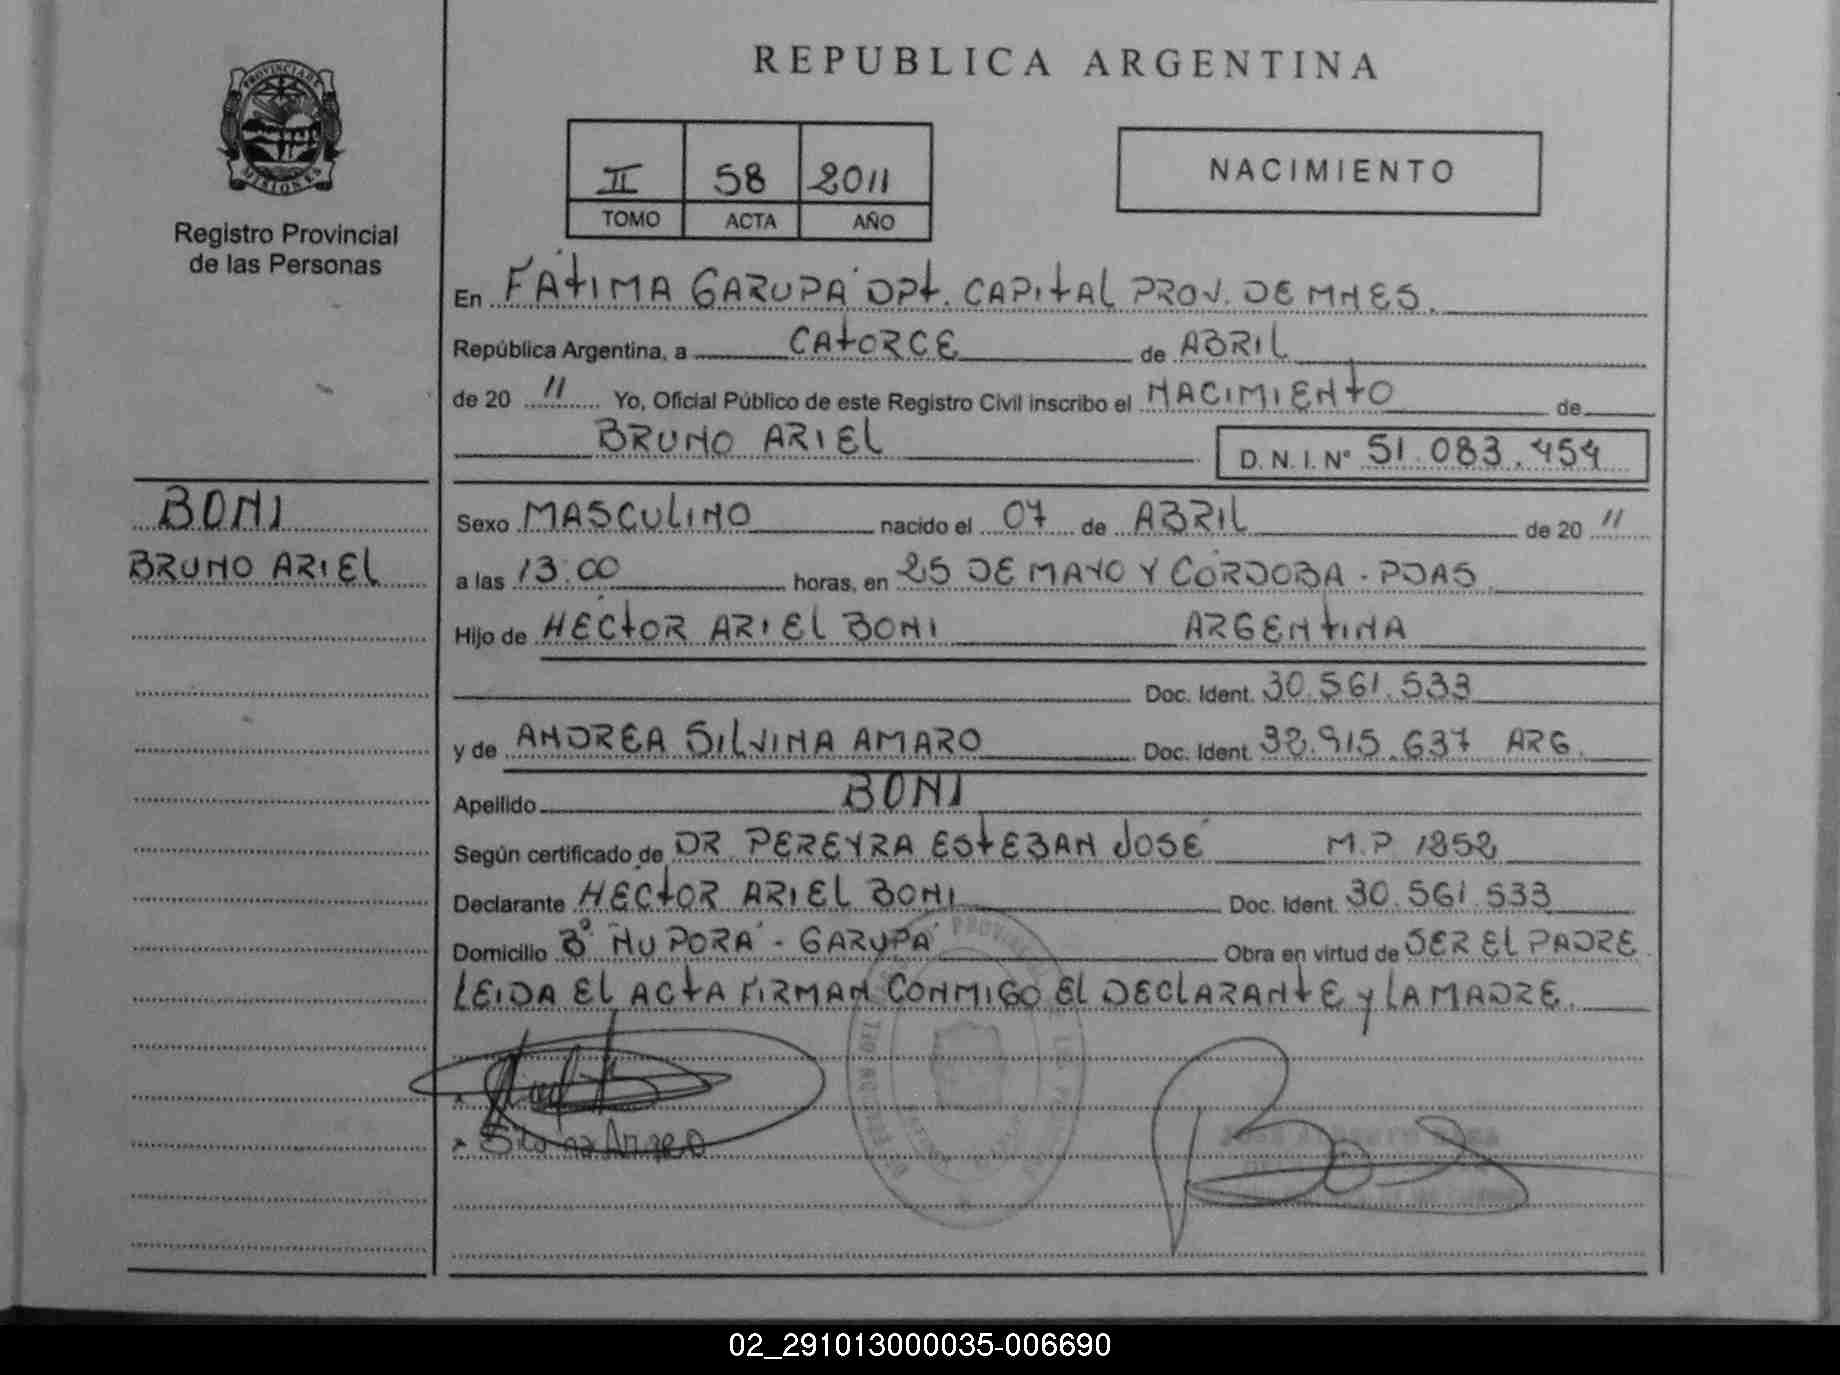 REPUBLICA ARGENTINA
PROVINCIA DE
MISIONES
Registro Provincial
de las Personas
II 58 2011
TOMO ACTA AÑO
NACIMIENTO
En FÁTIMA GARUPÁ DPT. CAPITAL PROV. DE MNES.
República Argentina, a CATORCE de ABRIL
de 20 11 Yo, Oficial Público de este Registro Civil inscribo el NACIMIENTO de
BRUNO ARIEL D.N.I. N° 51.083.454
BONI
BRUNO ARIEL
Sexo MASCULINO nacido el 07 de ABRIL de 20 11
a las 13:00 horas, en 25 DE MAYO Y CÓRDOBA - PDAS
Hijo de HÉCTOR ARIEL BONI ARGENTINA
Doc. Ident. 30.561.533
y de ANDREA SILVINA AMARO Doc. Ident. 38.915.637 ARG.
Apellido BONI
Según certificado de DR PEREYRA ESTEBAN JOSÉ M.P 1852
Declarante HÉCTOR ARIEL BONI Doc. Ident. 30.561.533
Domicilio B° ÑU PORÁ - GARUPÁ Obra en virtud de SER EL PADRE
LEIDA EL ACTA FIRMAN CONMIGO EL DECLARANTE Y LA MADRE.
02_291013000035-006690